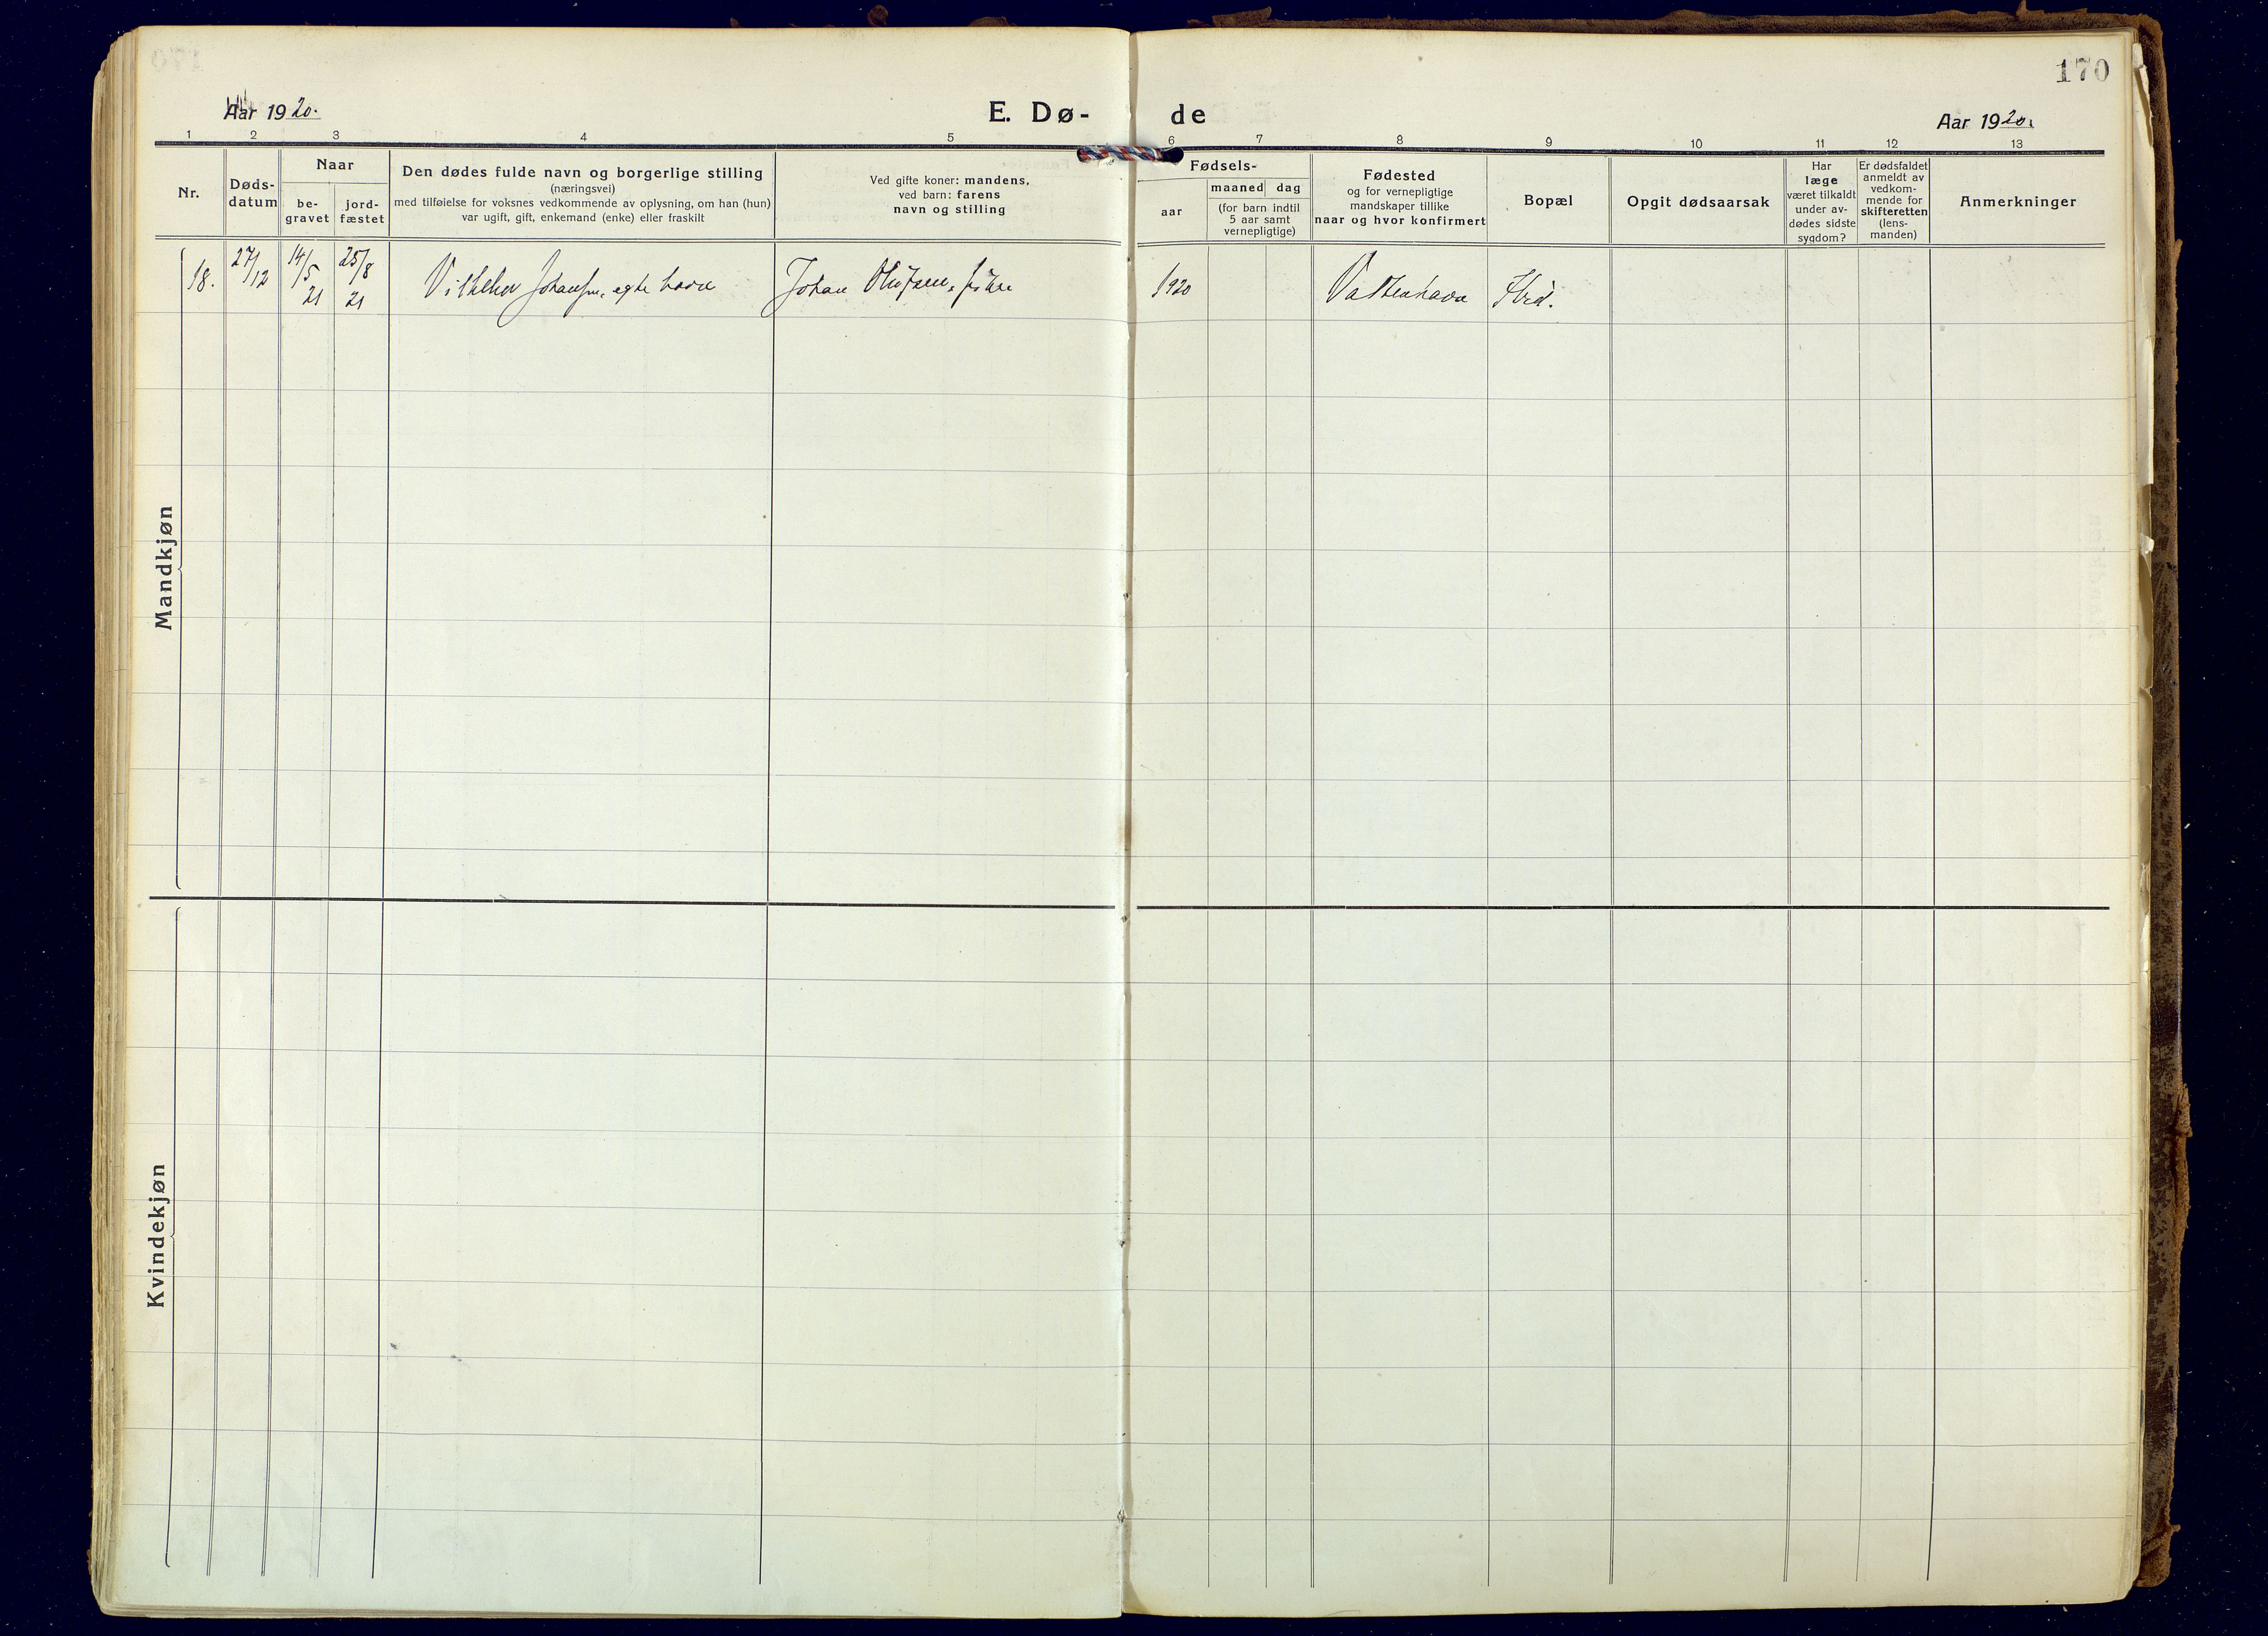 170
Aar 1920.
E. Dø-
de
Aar 1920.
1 2 3 4 5 6 7 8 9 10 11 12 13
Nr.
Døds-
datum
Naar
be-
gravet
jord-
fæstet
Den dødes fulde navn og borgerlige stilling
(næringsvei)
med tilføielse for voksnes vedkommende av oplysning, om han (hun)
var ugift, gift, enkemand (enke) eller fraskilt
Ved gifte koner: mandens,
ved barn: farens
navn og stilling
Fødsels-
aar
maaned dag
(for barn indtil
5 aar samt
vernepligtige)
Fødested
og for vernepligtige
mandskaper tillike
naar og hvor konfirmert
Bopæl
Opgit dødsaarsak
Har
læge
været tilkaldt
under av-
dødes sidste
sygdom?
Er dødsfaldet
anmeldt av
vedkom-
mende for
skifteretten
(lens-
manden)
Anmerkninger
Mandkjøn
18. 27/12 14/5 21 25/8 21 Johansen, egte Johan Olufsen, fisker 1920 Strd.
Kvindekjøn